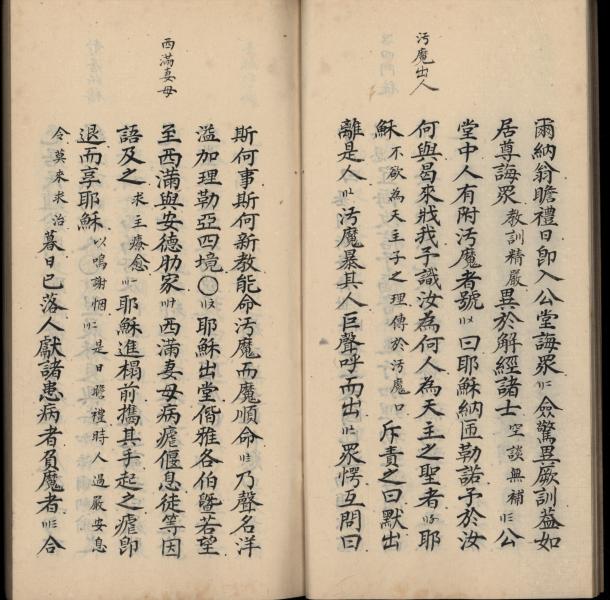 汚魔出人
爾納翁瞻禮日卽入公堂誨眾僉驚異厥訓葢如
居尊誨眾教訓精嚴異於解經諸士空談無補公
堂中人有附汚魔者號曰耶穌納匝勒諾予於汝
何與曷來戕我予識汝為何人為天主之聖者耶
穌不欲為天主子之理傳於汚魔口斥責之曰默出
離是人汚魔暴其人巨聲呼而出眾愕互問曰
西滿妻母
斯何事斯何新教能命汚魔而魔順命乃聲名洋
溢加理勒亞四境〇耶穌出堂偕雅各伯曁若望
至西滿與安德肋家西滿妻母病瘧偃息徒等因
語及之求主療愈耶穌進榻前攜其手起之瘧卽
退而享耶穌以鳴謝悃是日瞻禮時人過嚴安息
令莫來求治暮日已落人獻諸患病者負魔者合